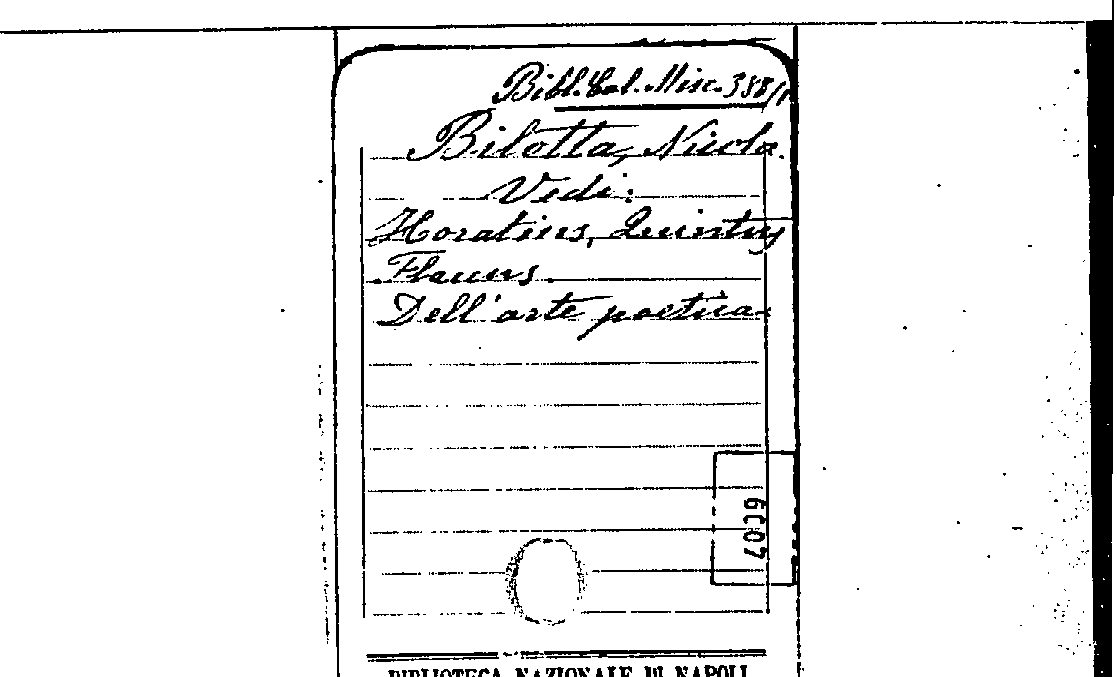 Bibl. Cal. Misc. 388/1
Bilotta, Nicola.
Vedi:
Horatius, Quintus
Flaccus.
Dell'arte poetica.
6007
BIBLIOTECA NAZIONALE DI NAPOLI